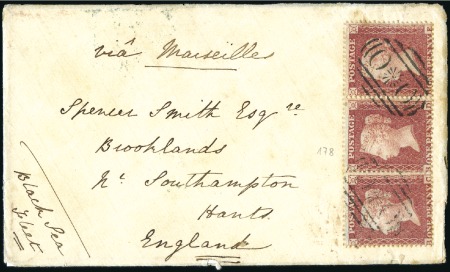 viâ Marseilles
Spencer Smith Esqre
Brooklands
Nr. Southampton
Hants.
England
Black Sea
Fleet
178
POSTAGE
POSTAGE
POSTAGE